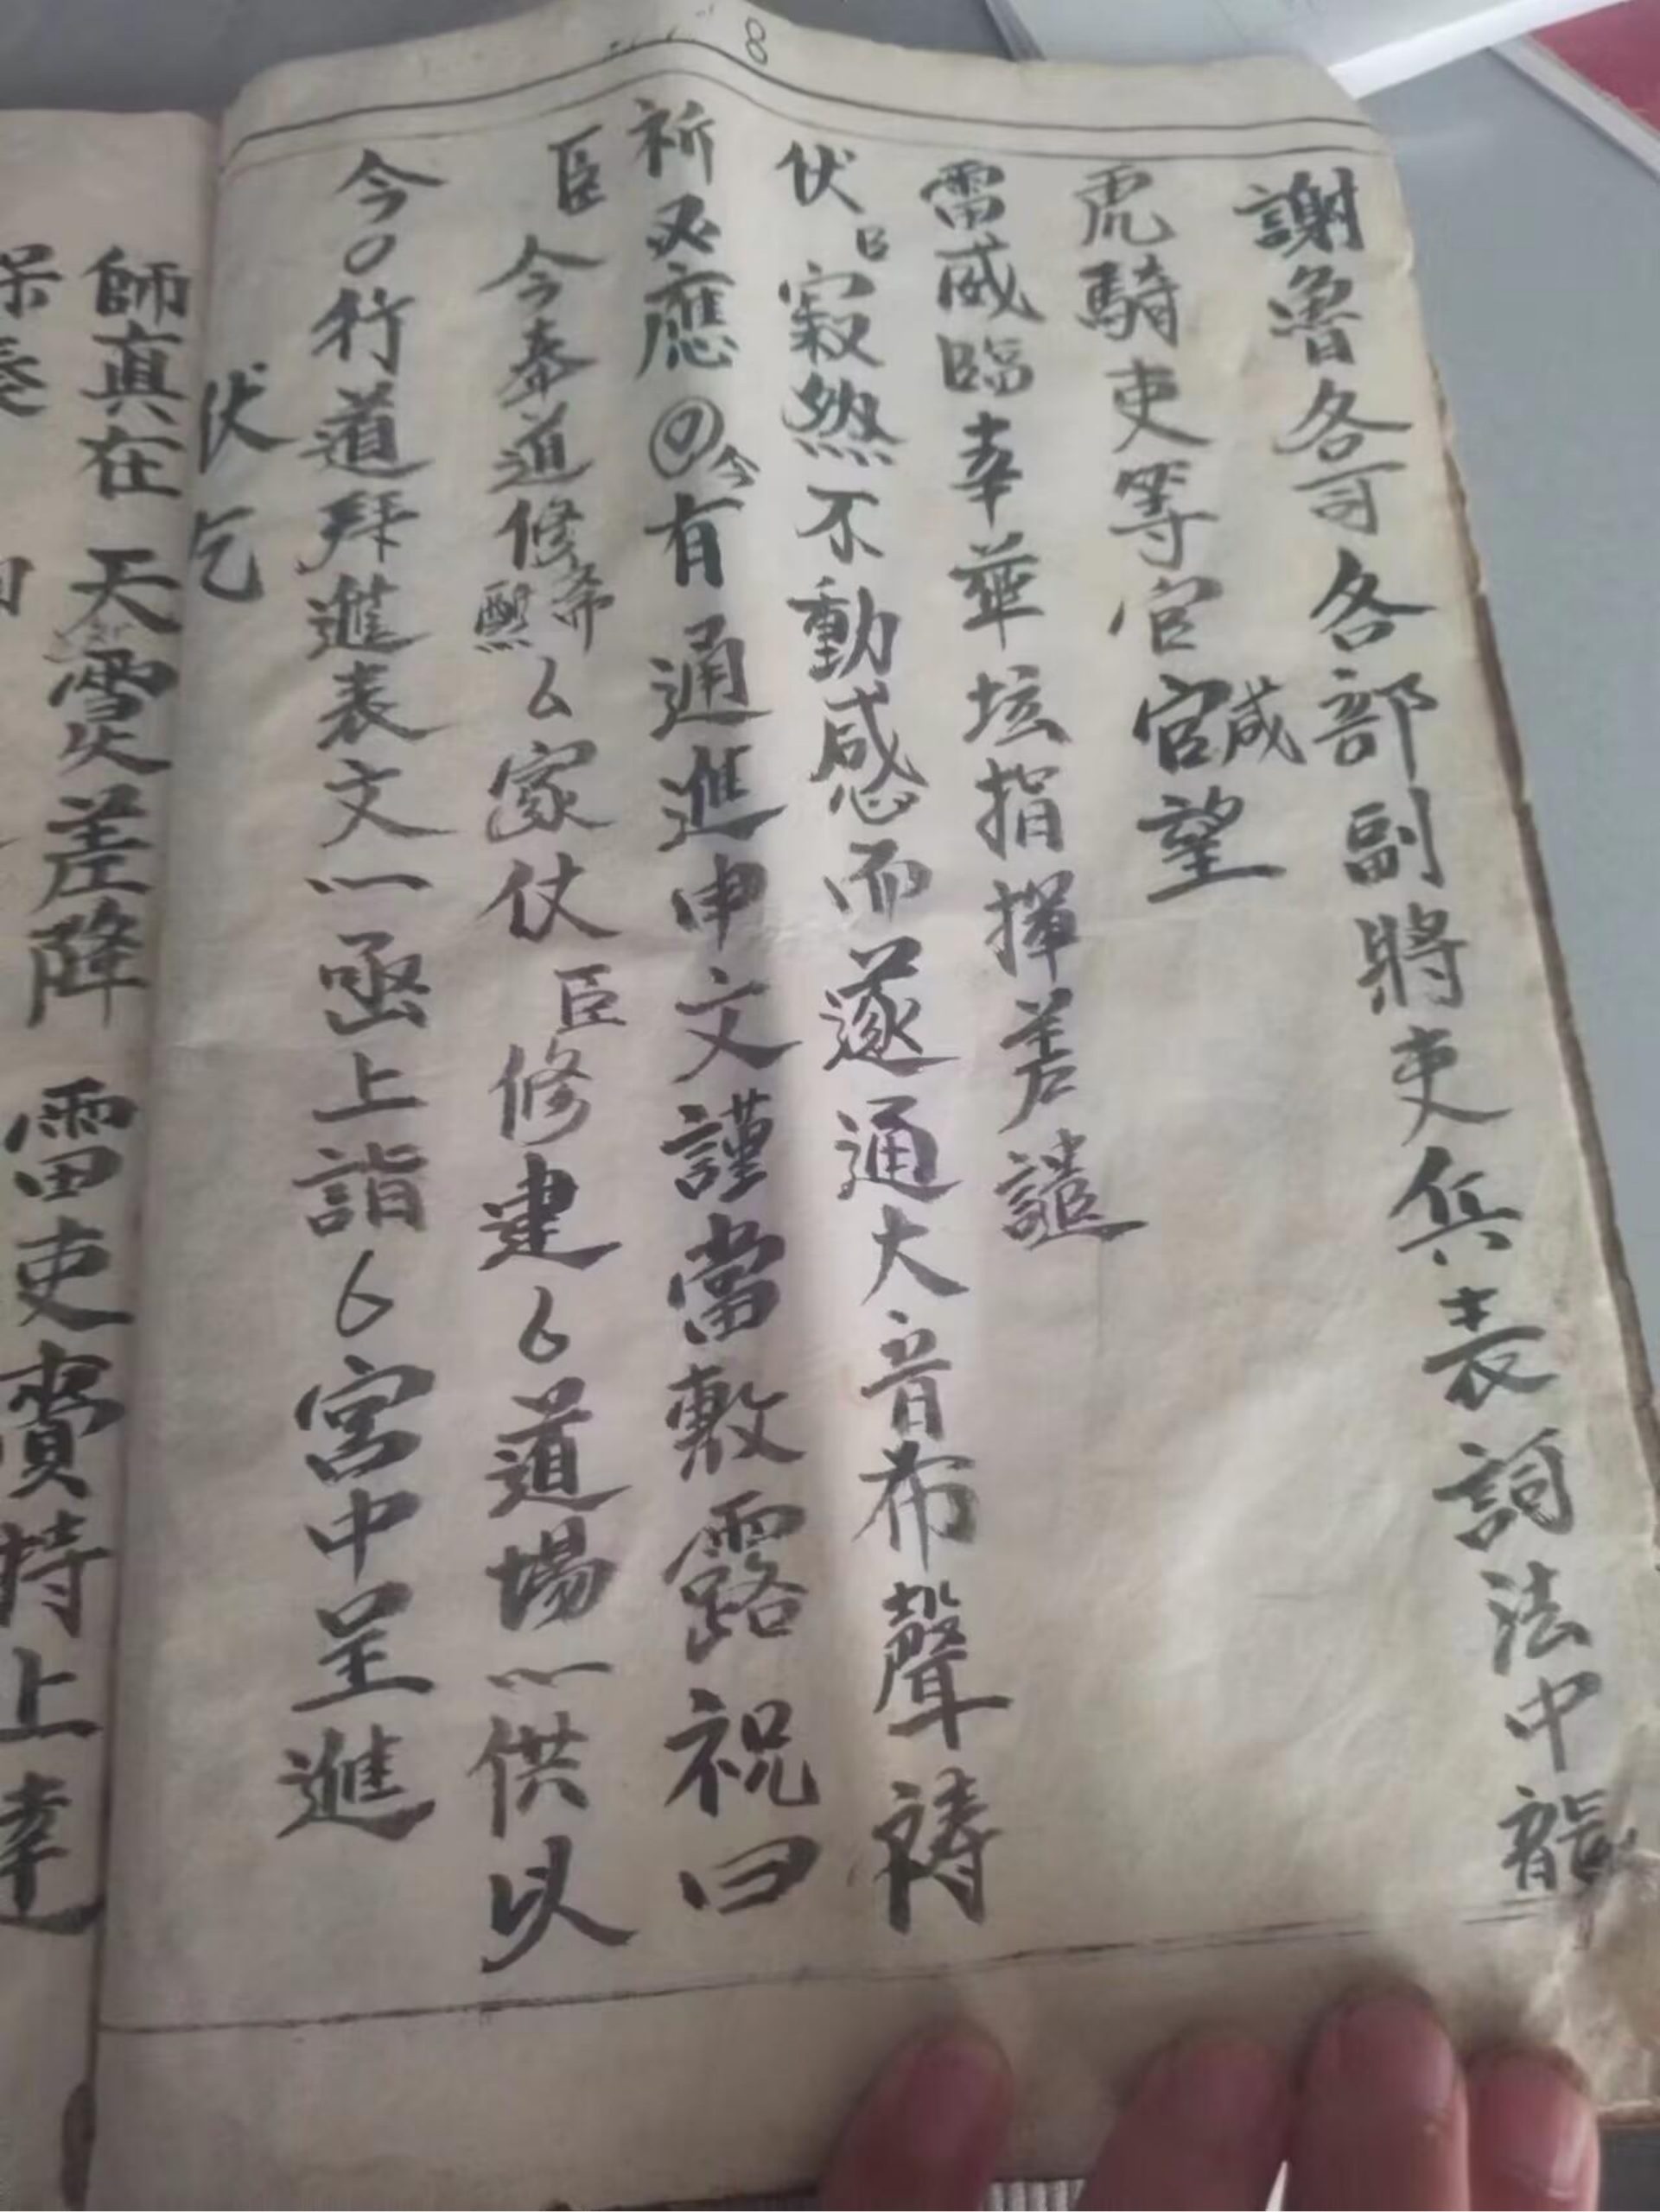 8
謝魯各司各部副將吏兵表詞法中龍
虎騎吏等官官咸望
雷威臨幸華坛指揮差譴
伏以寂然不動感而遂通大音布聲禱
祈必應今有通進申文謹當敷露祝曰
臣今奉道修齋醮厶家仗臣修建6道場一供以
今〇行道拜進表文一函上詣6宮中呈進
伏乞
師真在天雷火差降雷吏賫持上達
保奏